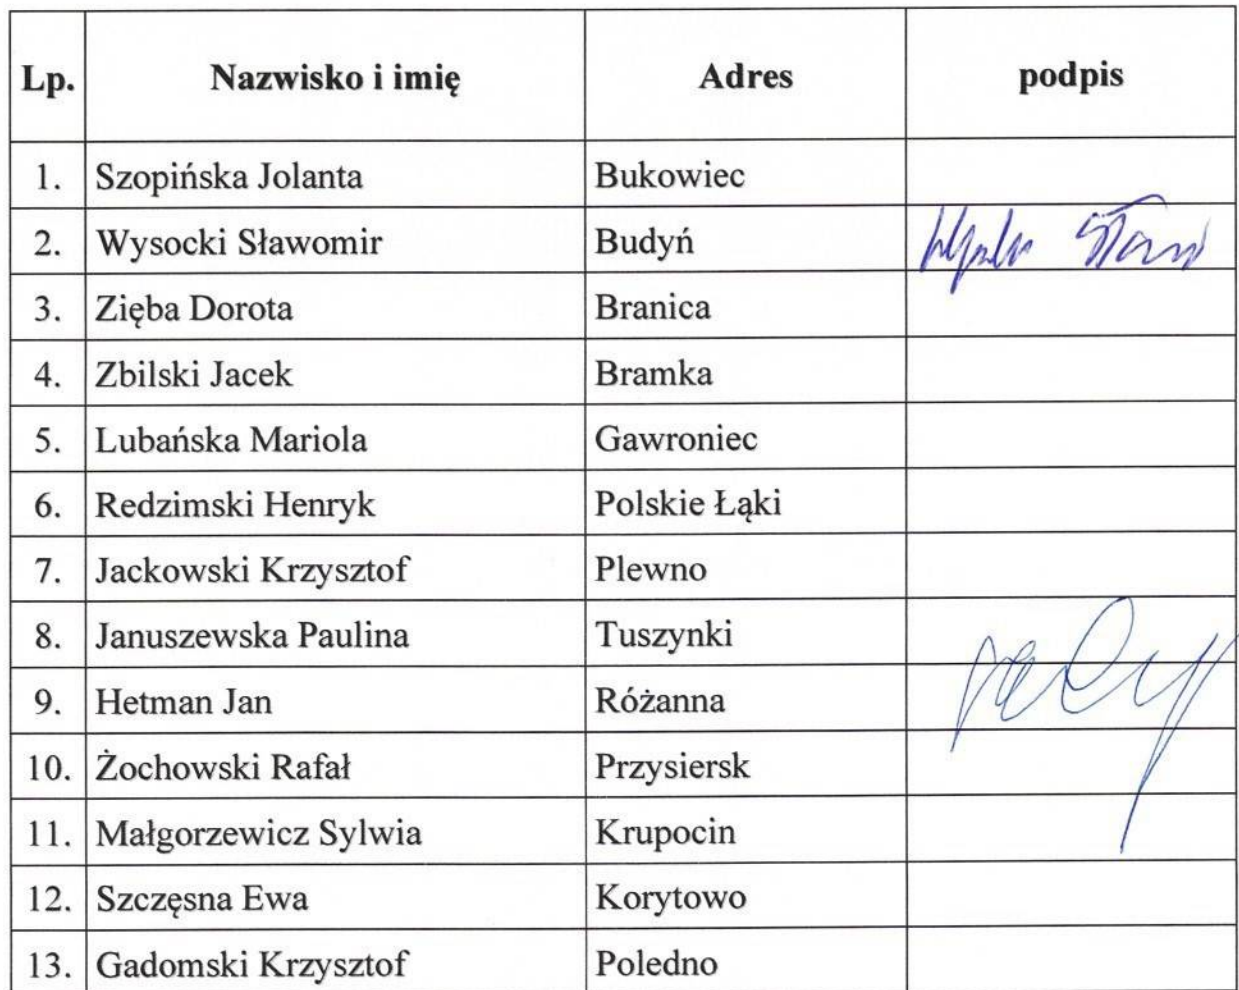 Lp. Nazwisko i imię Adres podpis
1. Szopińska Jolanta Bukowiec
2. Wysocki Sławomir Budyń
3. Zięba Dorota Branica
4. Zbilski Jacek Bramka
5. Lubańska Mariola Gawroniec
6. Redzimski Henryk Polskie Łąki
7. Jackowski Krzysztof Plewno
8. Januszewska Paulina Tuszynki
9. Hetman Jan Różanna
10. Żochowski Rafał Przysiersk
11. Małgorzewicz Sylwia Krupocin
12. Szczęsna Ewa Korytowo
13. Gadomski Krzysztof Poledno